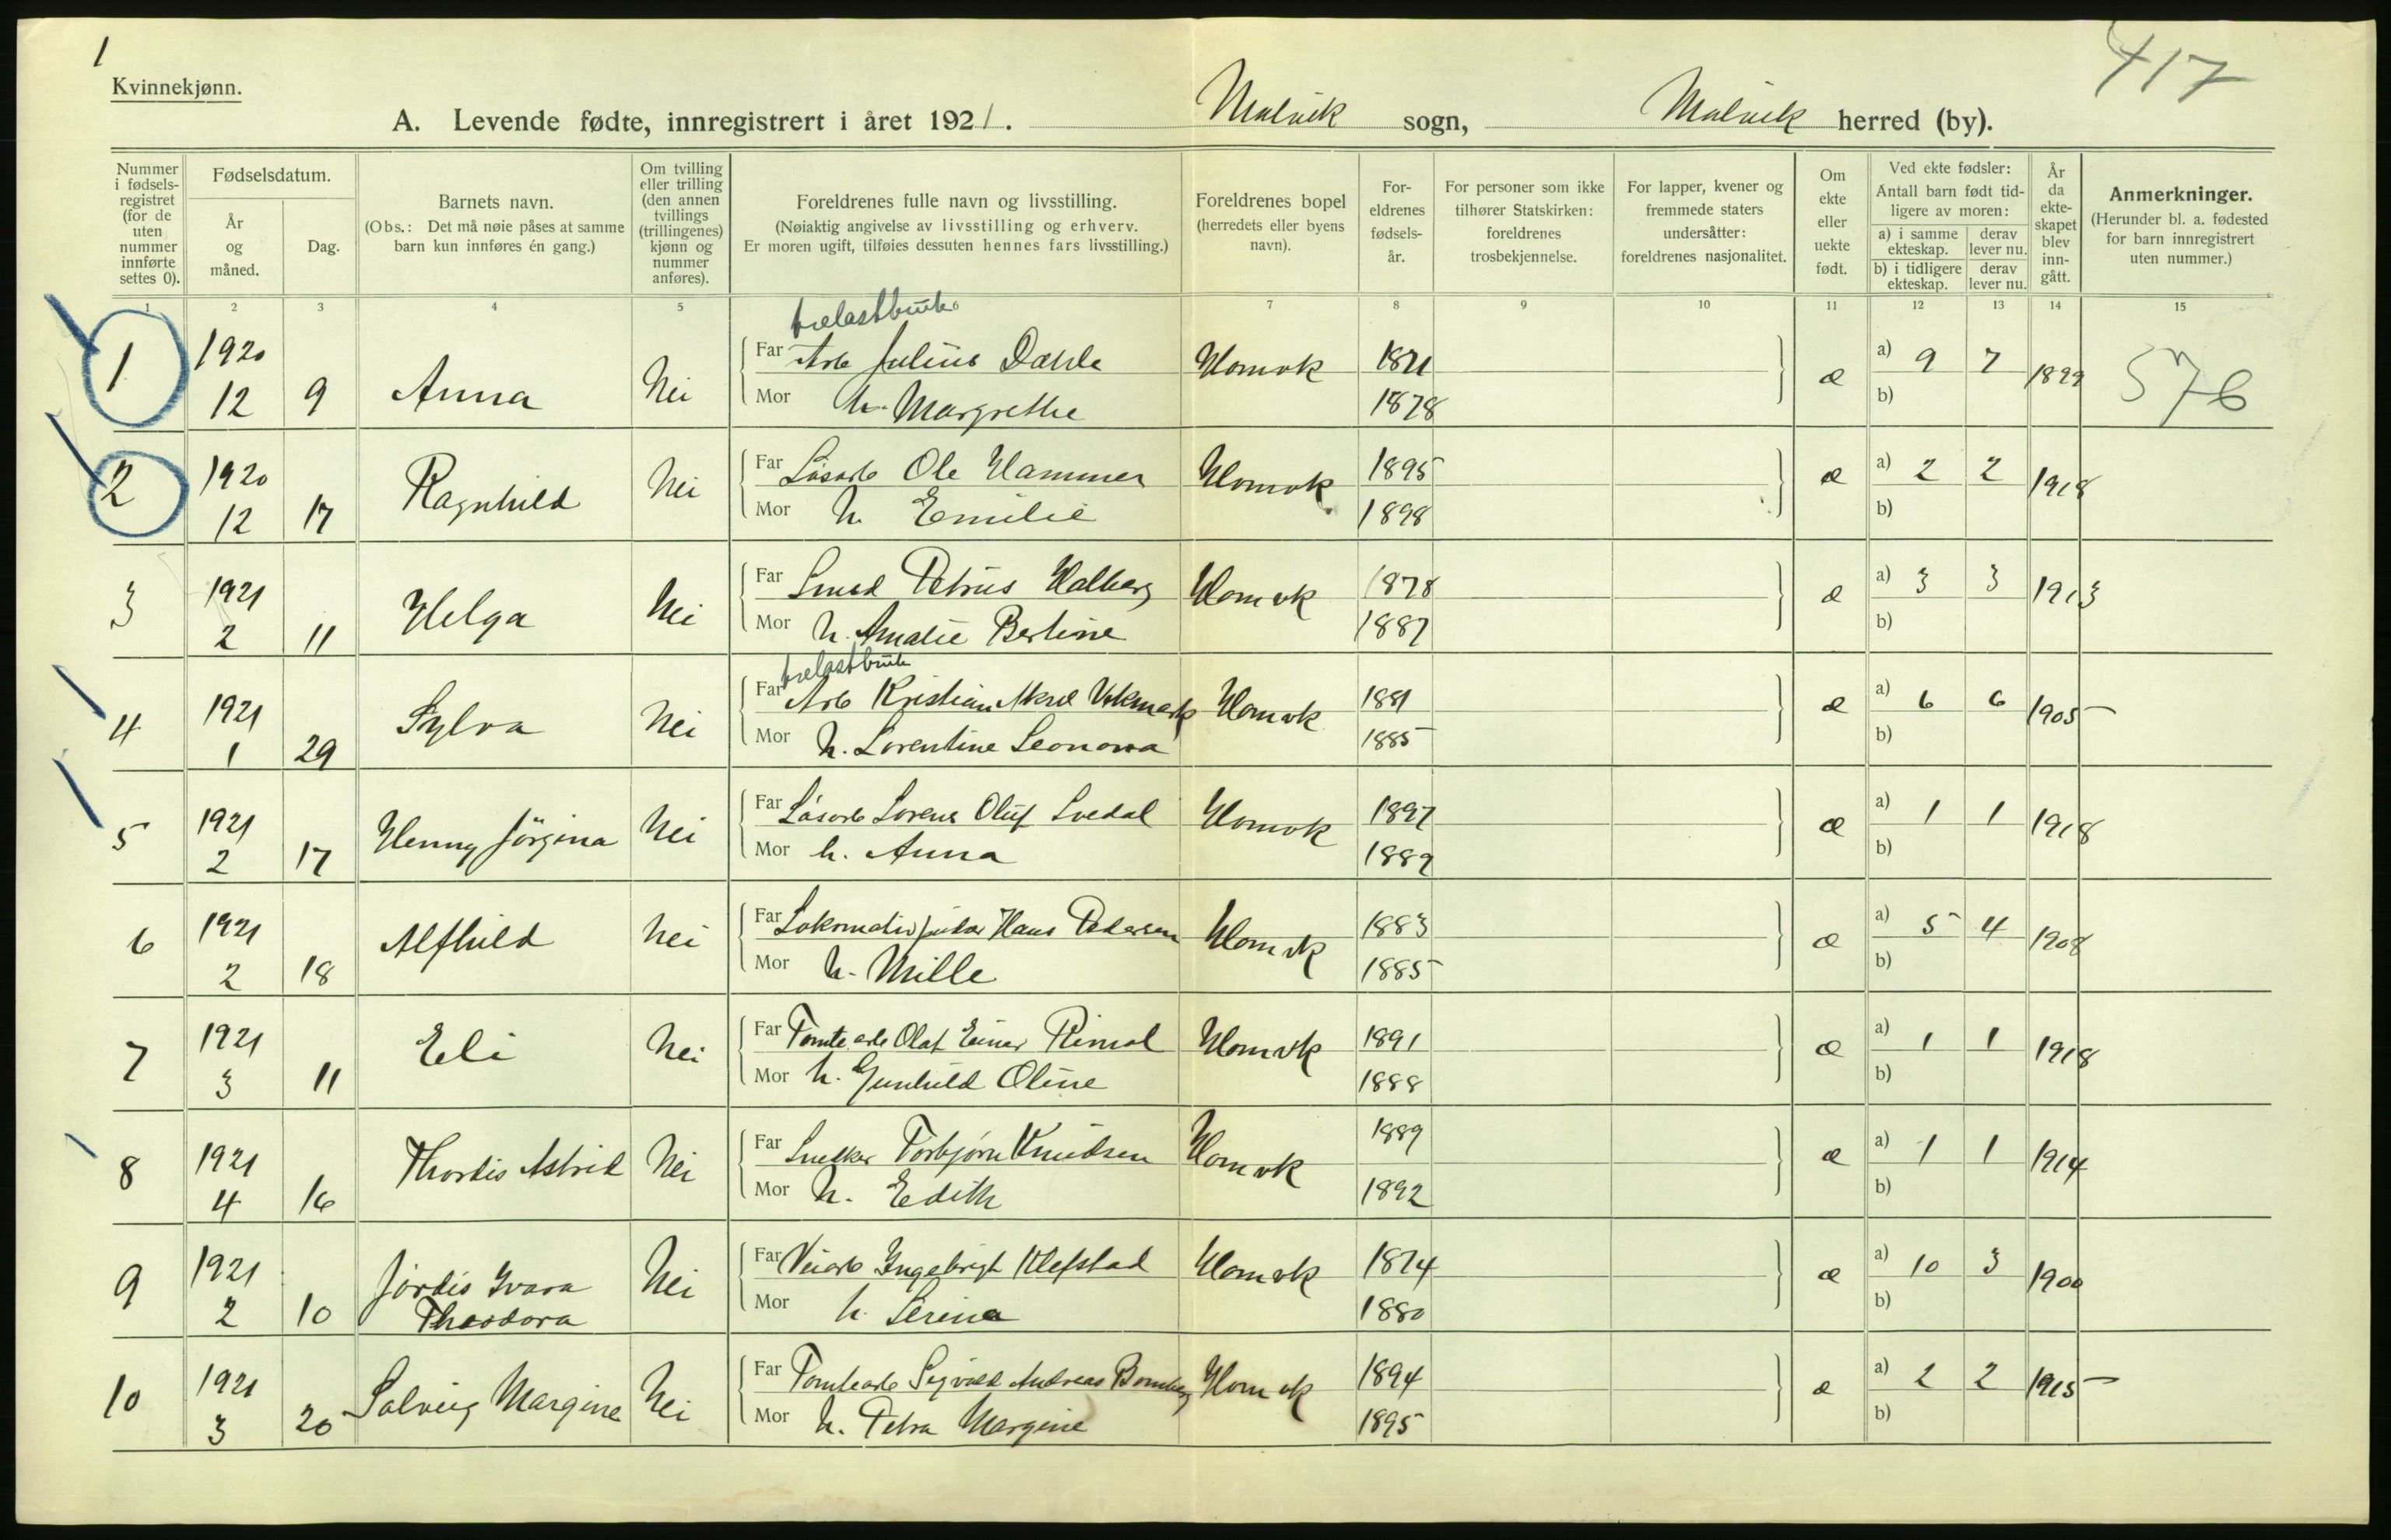 1
417
Kvinnekjønn.
A. Levende fødte, innregistrert i året 1921. Malvik sogn, Malvik herred (by).
Nummer i fødsels-registret (for de uten nummer innførte settes 0).
Fødselsdatum.
År og måned.
Dag.
Barnets navn.
(Obs.: Det må nøie påses at samme barn kun innføres én gang.)
Om tvilling eller trilling (den annen tvillings (trillingenes) kjønn og nummer anføres).
Foreldrenes fulle navn og livsstilling.
(Nøiaktig angivelse av livsstilling og erhverv.
Er moren ugift, tilføies dessuten hennes fars livsstilling.)
Foreldrenes bopel
(herredets eller byens navn).
For-eldrenes fødsels-år.
For personer som ikke tilhører Statskirken: foreldrenes trosbekjennelse.
For lapper, kvener og fremmede staters undersåtter: foreldrenes nasjonalitet.
Om ekte eller uekte født.
Ved ekte fødsler:
Antall barn født tid-ligere av moren:
a) i samme ekteskap.
derav lever nu.
b) i tidligere ekteskap.
derav lever nu.
År da ekte-skapet blev inn-gått.
Anmerkninger.
(Herunder bl. a. fødested for barn innregistrert uten nummer.)
1 2 3 4 5 6 7 8 9 10 11 12 13 14 15
trelastbruk
1 1920 12 9 Anna Nei Far Arb Julius Dahle Homvk 1871 æ a) 9 7 1899 576
Mor h. Margrethe 1878 b)
2 1920 12 17 Ragnhild Nei Far Løsarb Ole Hammer Homvk 1895 æ a) 2 2 1918
Mor h. Emilie 1898 b)
3 1921 2 11 Helga Nei Far Smed Petrus Halberg Homvk 1878 æ a) 3 3 1913
Mor h. Amalie Bertine 1887 b)
trelastbruk
4 1921 1 29 Sylva Nei Far Arb Kristian Aksel Vikmark Homvk 1881 æ a) 6 6 1905
Mor h. Lorentine Leonora 1885 b)
5 1921 2 17 Henny Jørgina Nei Far Løsarb Lorens Oluf Svedal Homvk 1897 æ a) 1 1 1918
Mor h. Anna 1889 b)
6 1921 2 18 Alfhild Nei Far Lokomotivpudser Hans Pedersen Homvk 1883 æ a) 5 4 1908
Mor h. Mille 1885 b)
7 1921 3 11 Eli Nei Far Tomtearb Olaf Einar Rimol Homvk 1891 æ a) 1 1 1918
Mor h. Gunhild Oline 1888 b)
8 1921 4 16 Thordis Astrid Nei Far Snekker Torbjørn Knudsen Homvk 1889 æ a) 1 1 1914
Mor h. Edith 1892 b)
9 1921 2 10 Jordis Ivara Nei Far Veiarb Ingebrigt Klefstad Homvk 1874 æ a) 10 3 1900
Theodora Mor h. Serina 1880 b)
10 1921 3 20 Solveig Margine Nei Far Tomtearb Sigvald Andreas Homvk 1894 æ a) 2 2 1915
Mor h. Petra Margine 1895 b)